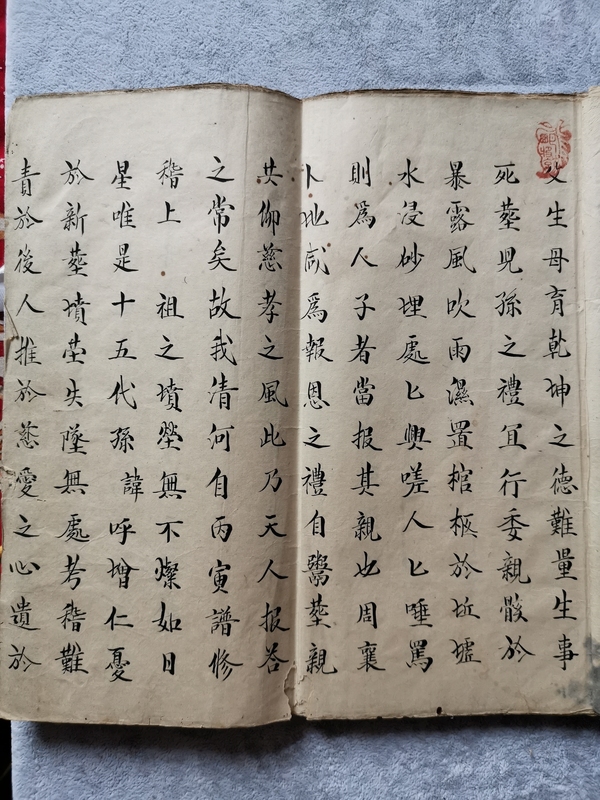 父生母育乾坤之德難量生事
死塟児孫之禮冝行委親骸於
暴露風吹雨濕置棺柩於坵墟
水浸砂埋處匕興嗟人匕唾罵
則為人子者當报其親也周襄
卜地咸為報恩之禮自鬻塟親
共仰慈孝之風此乃天人报答
之常矣故我清何自丙寅譜修
稽上 祖之墳塋無不燦如日
星唯是十五代孫 諱呼增仁憂
於新塟墳塋失墜無處考稽難
責於後人推於慈愛之心遺於